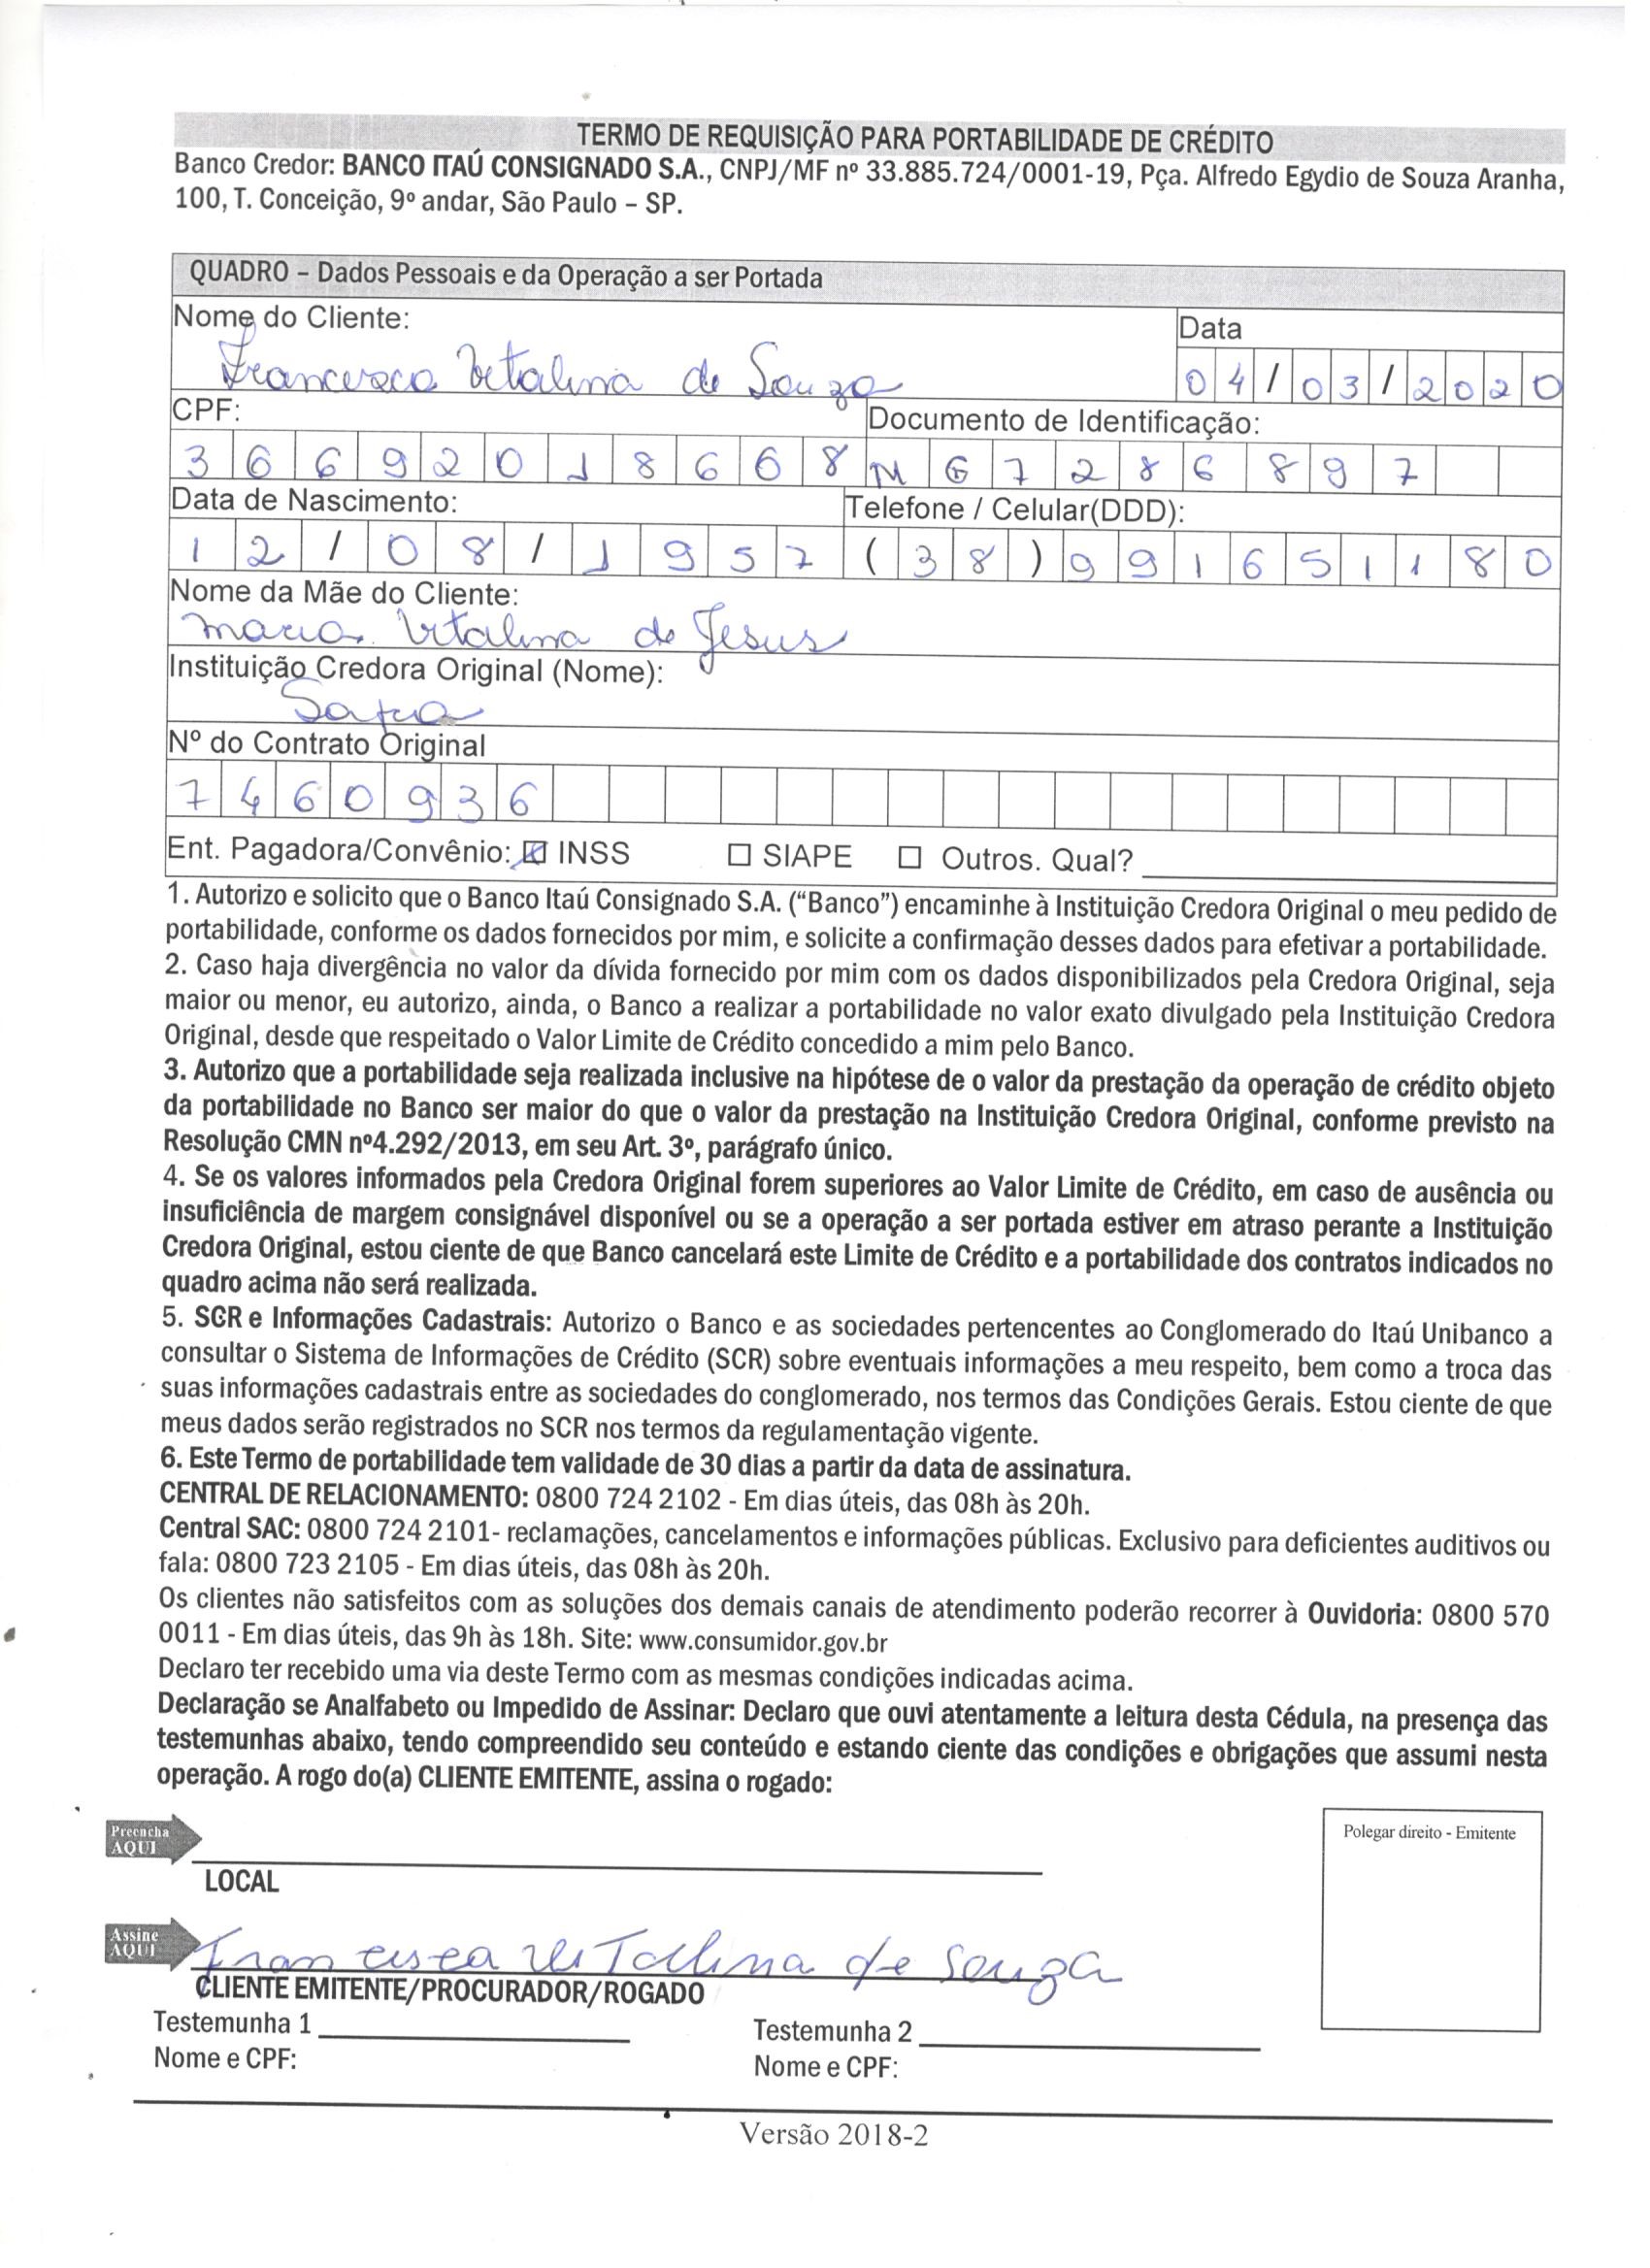 TERMO DE REQUISIÇÃO PARA PORTABILIDADE DE CRÉDITO
Banco Credor: BANCO ITAÚ CONSIGNADO S.A., CNPJ/MF nº 33.885.724/0001-19, Pça. Alfredo Egydio de Souza Aranha,
100, T. Conceição, 9º andar, São Paulo – SP.
QUADRO – Dados Pessoais e da Operação a ser Portada
Nome do Cliente: Data
Francisca Vitalina de Souza 04/03/2020
CPF: Documento de Identificação:
36692018668 MG7286897
Data de Nascimento: Telefone / Celular(DDD):
12/08/1957 (38)991651180
Nome da Mãe do Cliente:
Maria Vitalina de Jesus
Instituição Credora Original (Nome):
Safra
Nº do Contrato Original
7460936
Ent. Pagadora/Convênio: ☒ INSS ☐ SIAPE ☐ Outros. Qual?
1. Autorizo e solicito que o Banco Itaú Consignado S.A. (“Banco”) encaminhe à Instituição Credora Original o meu pedido de
portabilidade, conforme os dados fornecidos por mim, e solicite a confirmação desses dados para efetivar a portabilidade.
2. Caso haja divergência no valor da dívida fornecido por mim com os dados disponibilizados pela Credora Original, seja
maior ou menor, eu autorizo, ainda, o Banco a realizar a portabilidade no valor exato divulgado pela Instituição Credora
Original, desde que respeitado o Valor Limite de Crédito concedido a mim pelo Banco.
3. Autorizo que a portabilidade seja realizada inclusive na hipótese de o valor da prestação da operação de crédito objeto
da portabilidade no Banco ser maior do que o valor da prestação na Instituição Credora Original, conforme previsto na
Resolução CMN nº4.292/2013, em seu Art. 3º, parágrafo único.
4. Se os valores informados pela Credora Original forem superiores ao Valor Limite de Crédito, em caso de ausência ou
insuficiência de margem consignável disponível ou se a operação a ser portada estiver em atraso perante a Instituição
Credora Original, estou ciente de que Banco cancelará este Limite de Crédito e a portabilidade dos contratos indicados no
quadro acima não será realizada.
5. SCR e Informações Cadastrais: Autorizo o Banco e as sociedades pertencentes ao Conglomerado do Itaú Unibanco a
consultar o Sistema de Informações de Crédito (SCR) sobre eventuais informações a meu respeito, bem como a troca das
suas informações cadastrais entre as sociedades do conglomerado, nos termos das Condições Gerais. Estou ciente de que
meus dados serão registrados no SCR nos termos da regulamentação vigente.
6. Este Termo de portabilidade tem validade de 30 dias a partir da data de assinatura.
CENTRAL DE RELACIONAMENTO: 0800 724 2102 - Em dias úteis, das 08h às 20h.
Central SAC: 0800 724 2101- reclamações, cancelamentos e informações públicas. Exclusivo para deficientes auditivos ou
fala: 0800 723 2105 - Em dias úteis, das 08h às 20h.
Os clientes não satisfeitos com as soluções dos demais canais de atendimento poderão recorrer à Ouvidoria: 0800 570
0011 - Em dias úteis, das 9h às 18h. Site: www.consumidor.gov.br
Declaro ter recebido uma via deste Termo com as mesmas condições indicadas acima.
Declaração se Analfabeto ou Impedido de Assinar: Declaro que ouvi atentamente a leitura desta Cédula, na presença das
testemunhas abaixo, tendo compreendido seu conteúdo e estando ciente das condições e obrigações que assumi nesta
operação. A rogo do(a) CLIENTE EMITENTE, assina o rogado:
Preencha
AQUI
Polegar direito - Emitente
LOCAL
Assine
AQUI
Francisca Vitalina de Souza
CLIENTE EMITENTE/PROCURADOR/ROGADO
Testemunha 1 Testemunha 2
Nome e CPF: Nome e CPF:
Versão 2018-2